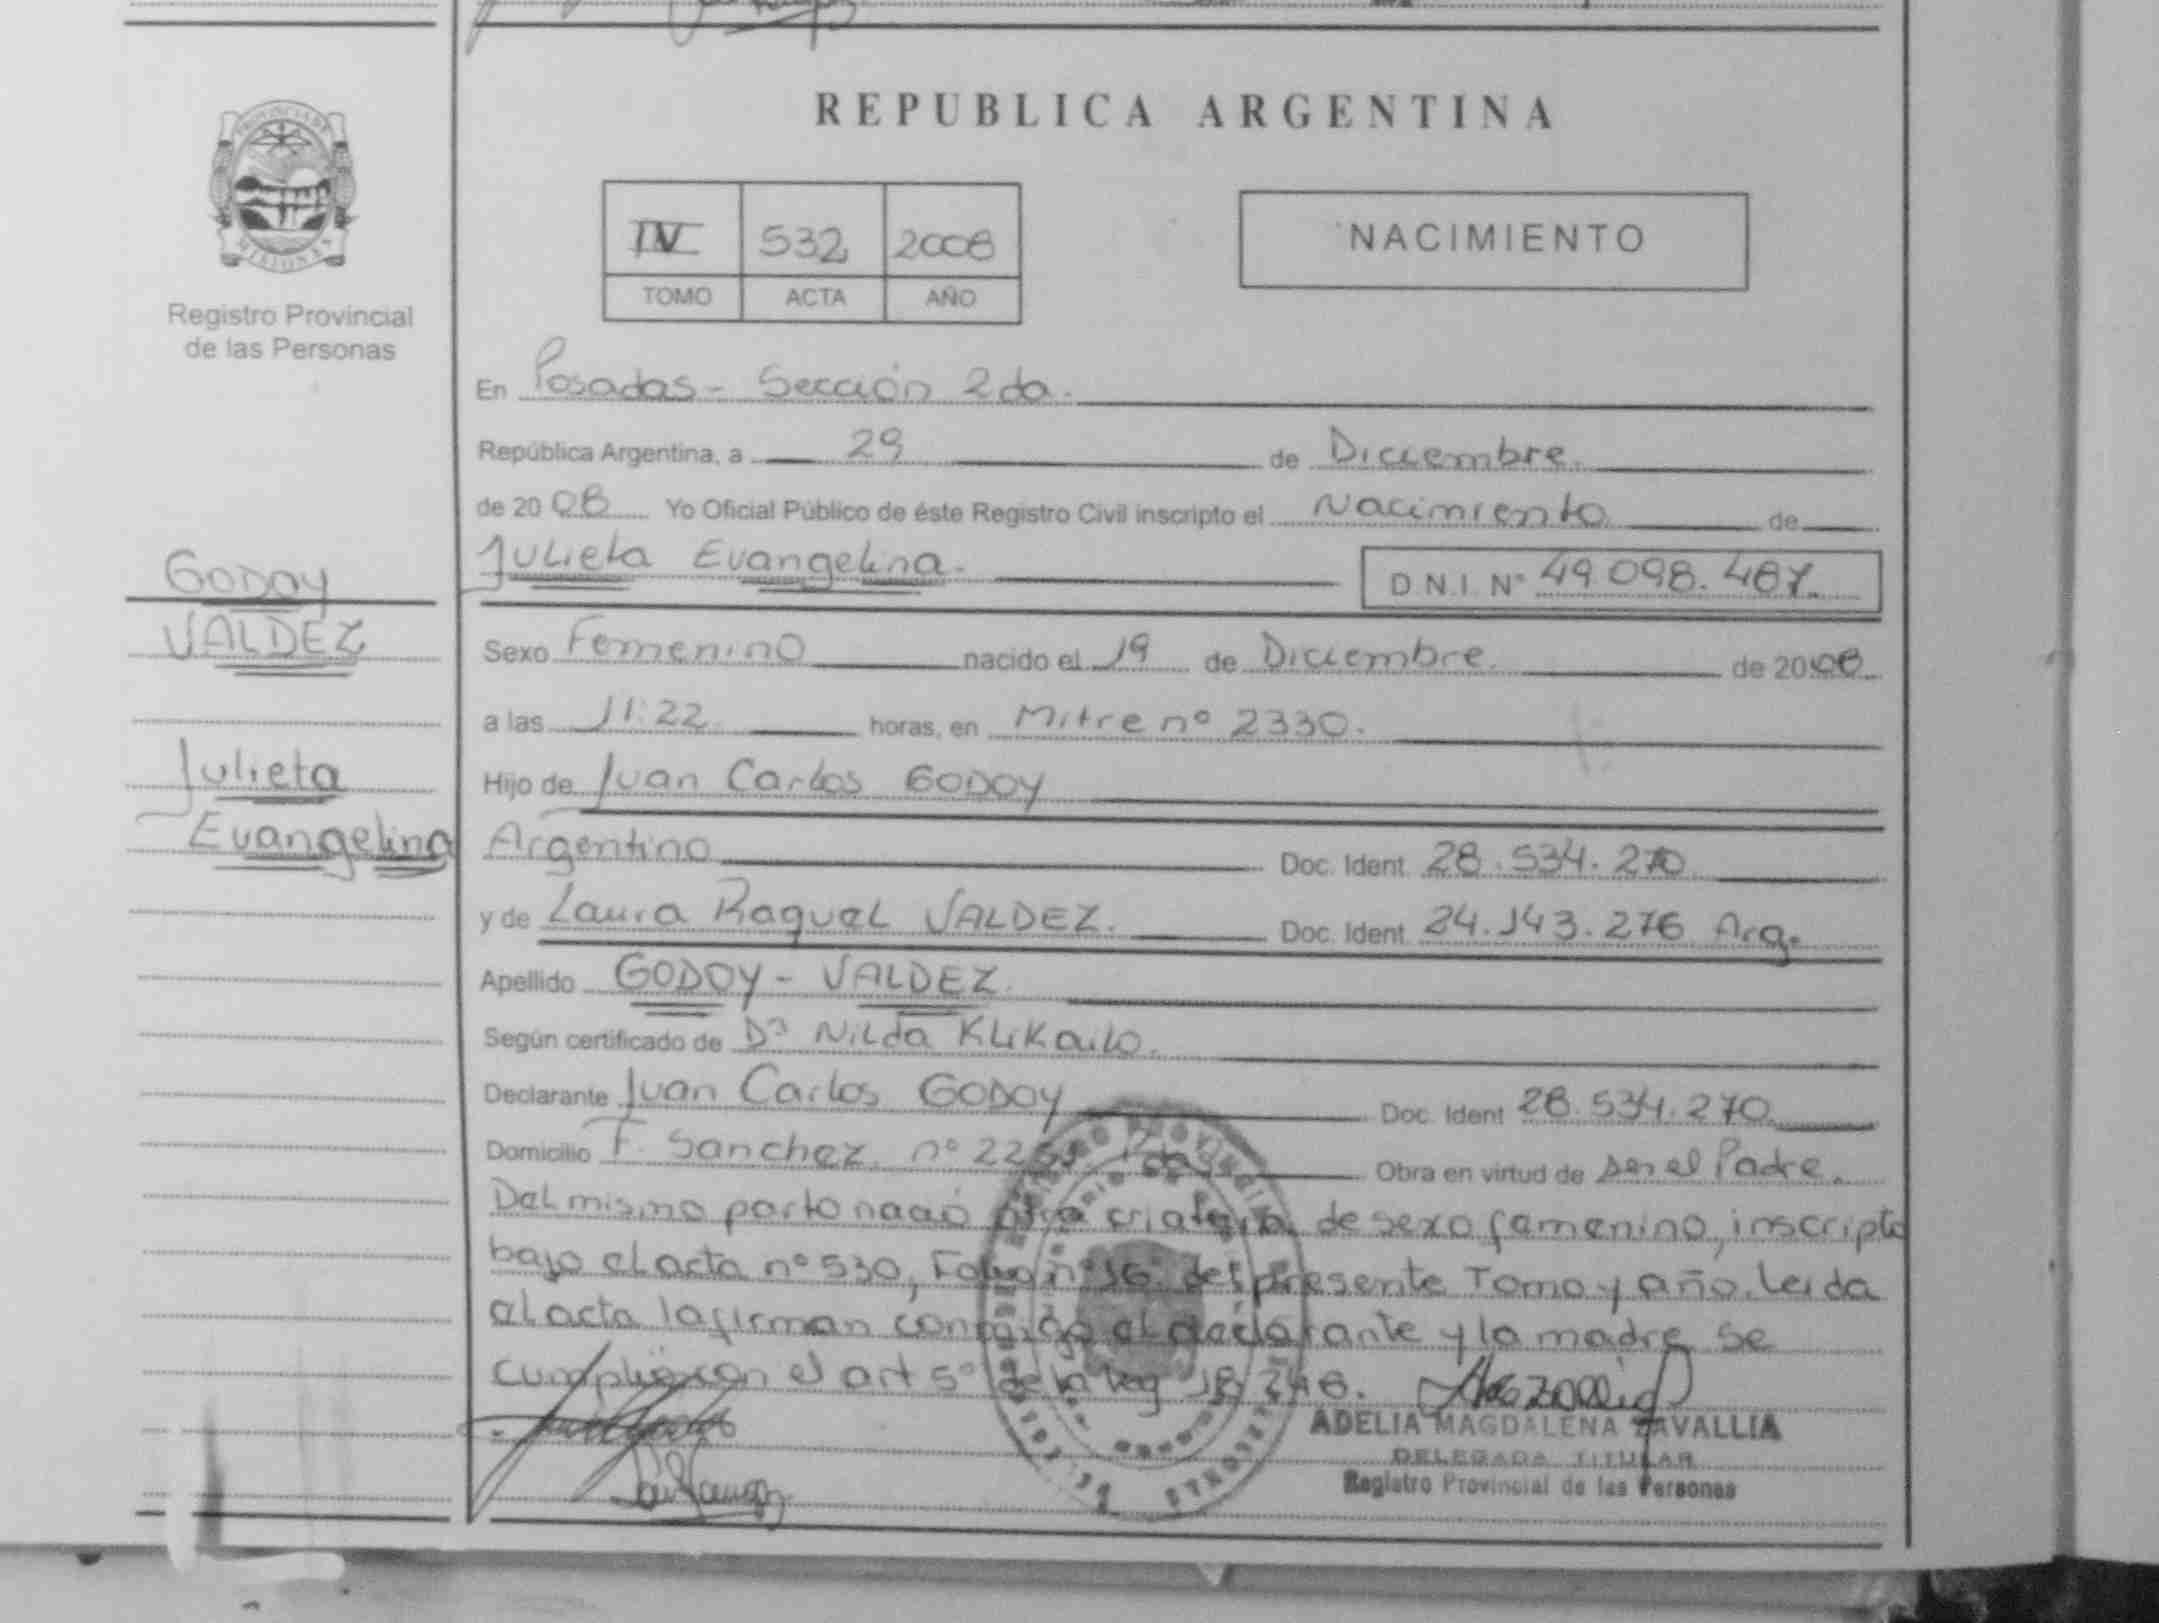 PROVINCIA DE
MISIONES
Registro Provincial
de las Personas
GODOY
VALDEZ
Julieta
Evangelina
REPUBLICA ARGENTINA
IV 532 2008
TOMO ACTA AÑO
NACIMIENTO
En Posadas - Sección 2da.
República Argentina, a 29 de Diciembre.
de 20 08 Yo Oficial Público de éste Registro Civil inscripto el Nacimiento de
Julieta Evangelina. D.N.I. Nº 49.098.487.
Sexo Femenino nacido el 19 de Diciembre. de 2008
a las 11:22. horas, en Mitre nº 2330.
Hijo de Juan Carlos GODOY
Argentino Doc. Ident. 28.534.270
y de Laura Raquel VALDEZ. Doc. Ident. 24.143.276 Arg.
Apellido GODOY - VALDEZ.
Según certificado de Dª Nilda Klikailo.
Declarante Juan Carlos GODOY Doc. Ident 28.534.270
Domicilio F. Sanchez nº Obra en virtud de ser el Padre.
Del mismo parto nació otra criatura de sexo femenino, inscripta
bajo el acta nº 530, Folio nº 16 del presente Tomo y año. Leida
el acta la firman conmigo el declarante y la madre se
cumplió con el art 5º de la ley 18.248.
ADELIA MAGDALENA ZAVALLIA
DELEGADA TITULAR
Registro Provincial de las Personas